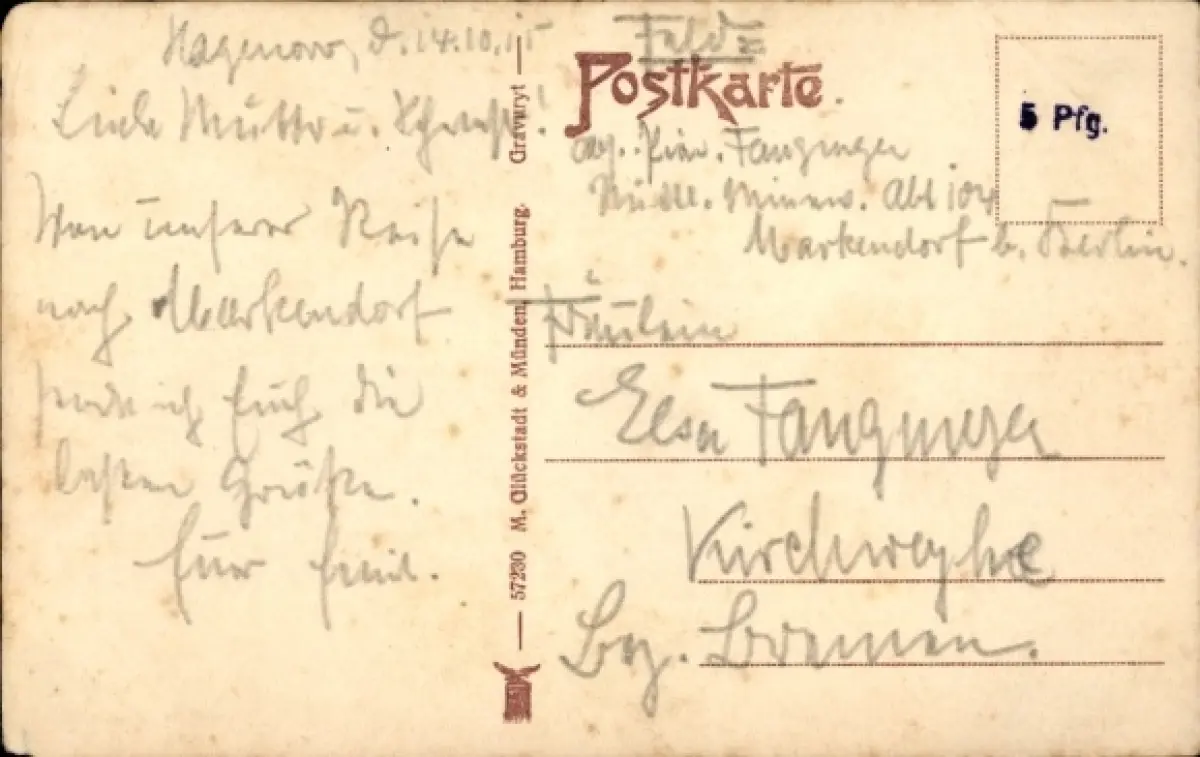 Hagenow, d. 14.10.15
Liebe Mutter u. Schwest.!
Von unserer Reise
nach Markendorf
sende ich Euch die
besten Grüße.
Euer Emil.
57230 M. Glückstadt & Münden, Hamburg. Gravuryt
Feld=
Postkarte.
5 Pfg.
Abs. Pion. Fangmeyer
Minenw. Abt 104
Markendorf b. Berlin.
Fräulein
Elsa Fangmeyer
Kirchweyhe
Bez. Bremen.